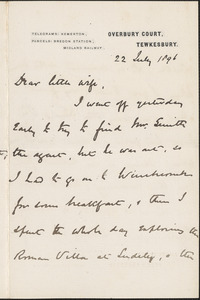 TELEGRAMS: KEMERTON;
PARCELS: BREDON STATION;
MIDLAND RAILWAY.
OVERBURY COURT,
TEWKESBURY.
22 July 1896
Dear little wife,
I went off yesterday
early to try to find Mr. Smith
the agent, but he was out, so
I had to go on to Winchcombe
for some breakfast, & then I
spent the whole day exploring the
Roman Villa at Sudeley, & the